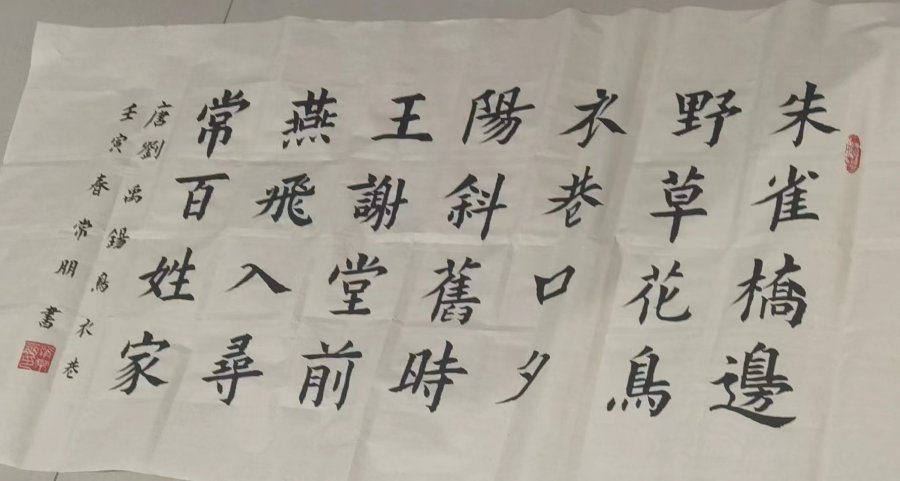 朱雀橋邊
野草花鳥
衣巷口夕
陽斜舊時
王謝堂前
燕飛入尋
常百姓家
唐劉禹錫鳥衣巷
壬寅春常朋書